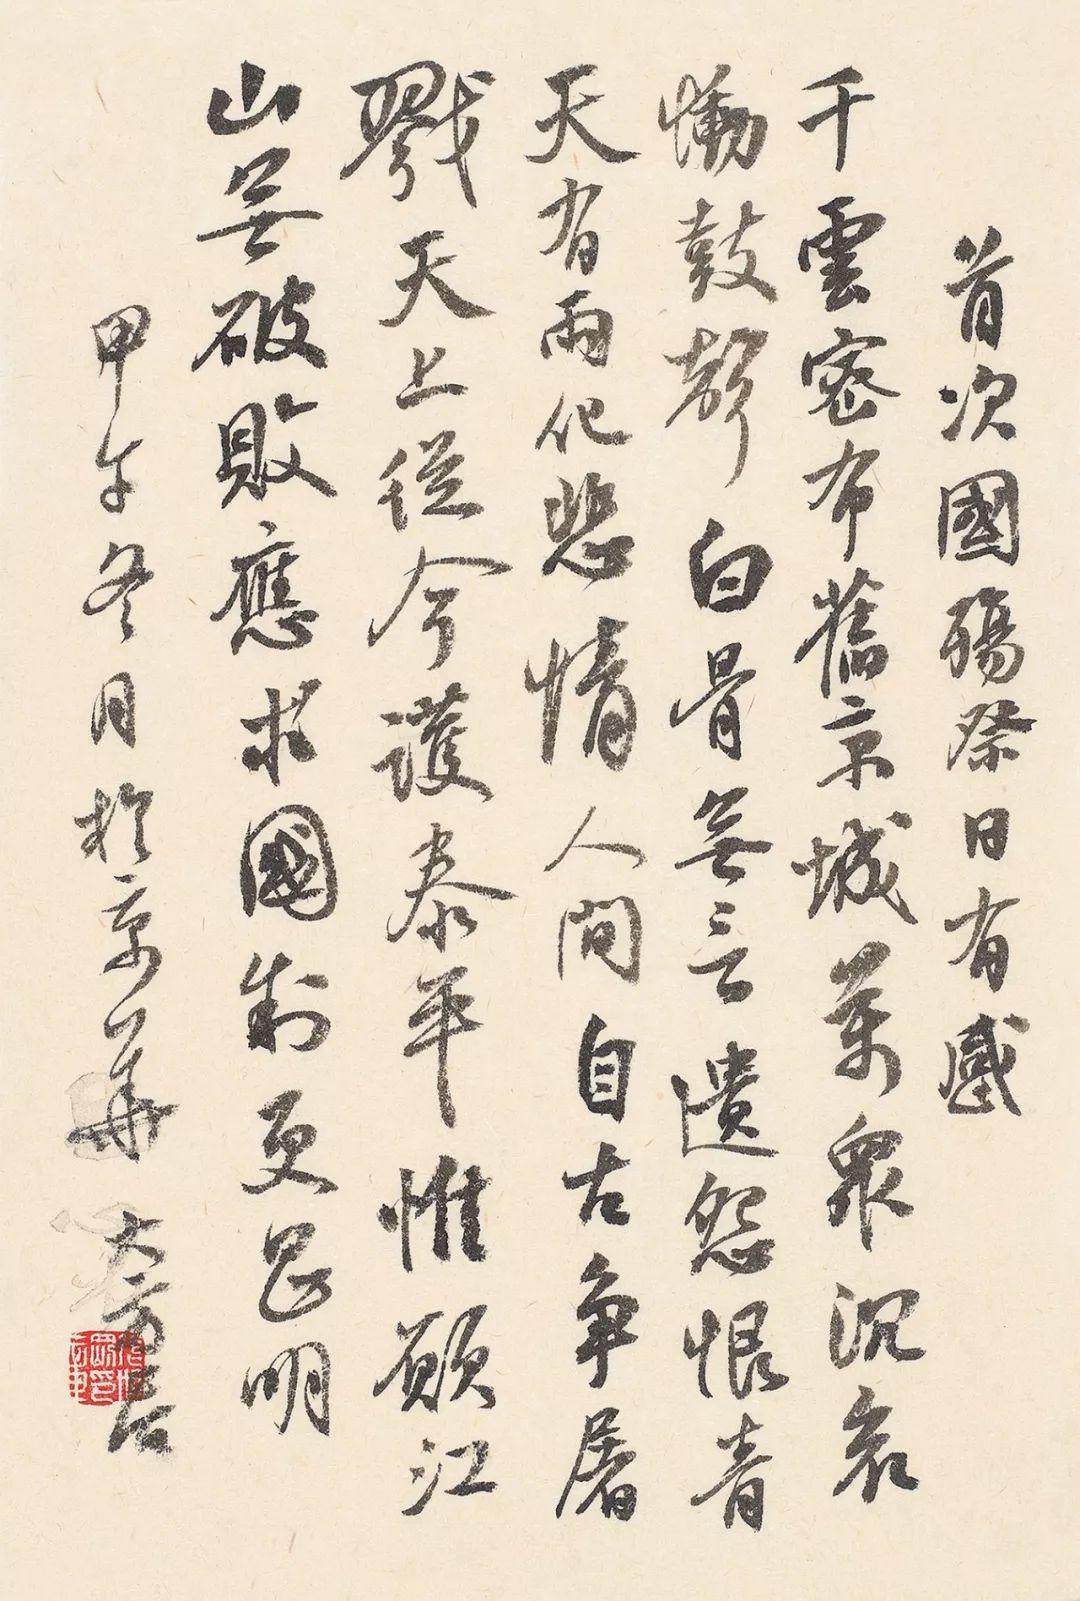 首次國殤祭日有感
千雲密布舊京城萬衆沉哀
慟鼓聲白骨無言遺怨恨青
天有雨化悲情人間自古争屠
戮天上從今護泰平惟願江
山無破敗應求國制更昌明
甲午冬月於京華